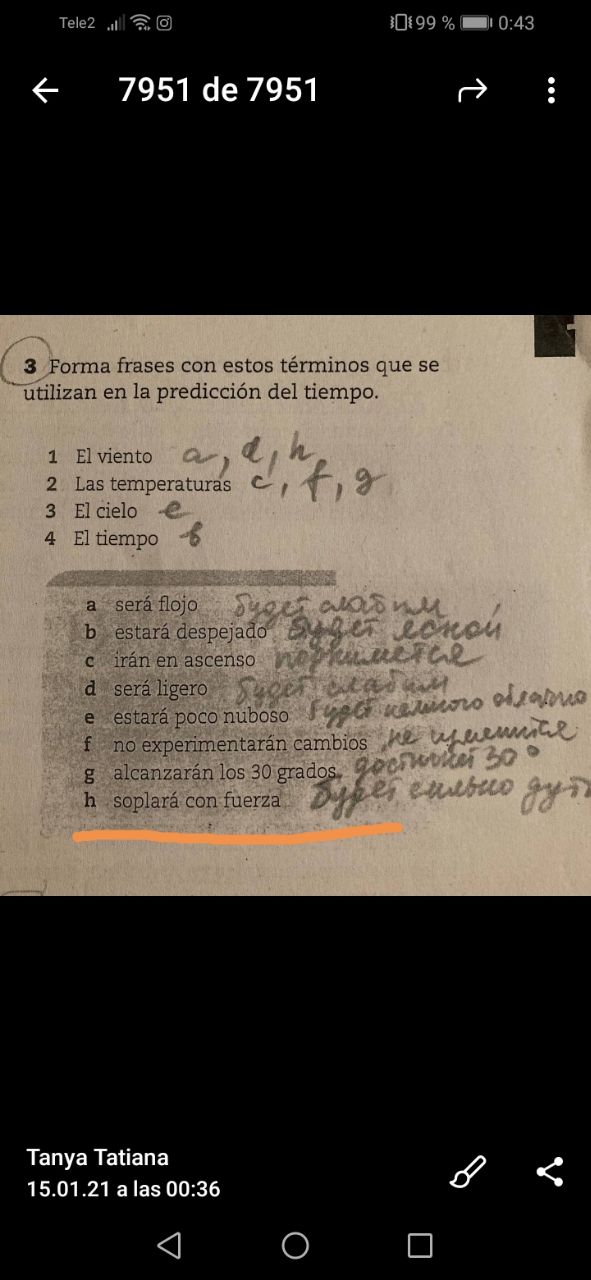 Tele2 99 % 0:43
7951 de 7951
3 Forma frases con estos términos que se
utilizan en la predicción del tiempo.
1 El viento a, d, h
2 Las temperaturas c, f, g
3 El cielo e
4 El tiempo b
a será flojo будет слабым
b estará despejado будет ясной
c irán en ascenso поднимется
d será ligero будет слабым
e estará poco nuboso будет немного облачно
f no experimentarán cambios не изменится
g alcanzarán los 30 grados достигнет 30°
h soplará con fuerza будет сильно дуть
Tanya Tatiana
15.01.21 a las 00:36